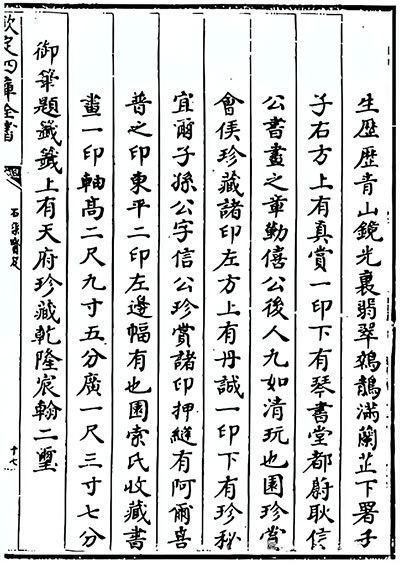 生歴歴青山鏡光裏翡翠鵁鶄滿蘭芷下署子
子右方上有真賞一印下有琴書堂都尉耿信
公書畫之章勤僖公後人九如清玩也園珍賞
會侯珍藏諸印左方上有丹誠一印下有珍秘
宜爾子孫公字信公珍賞諸印押縫有阿爾喜
普之印東平二印左邊幅有也園索氏收藏書
畫一印軸高二尺九寸五分廣一尺三寸七分
御筆題籤籤上有天府珍藏乾隆宸翰二璽
欽定四庫全書
石渠寶笈
十七